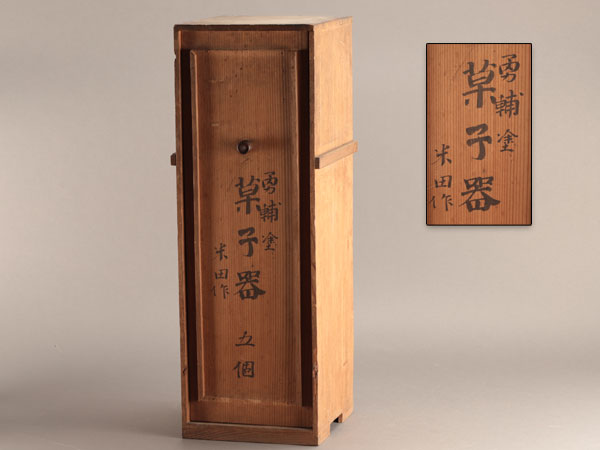 勇輔塗
菓子器
五個
米田作
勇輔塗
菓子器
米田作